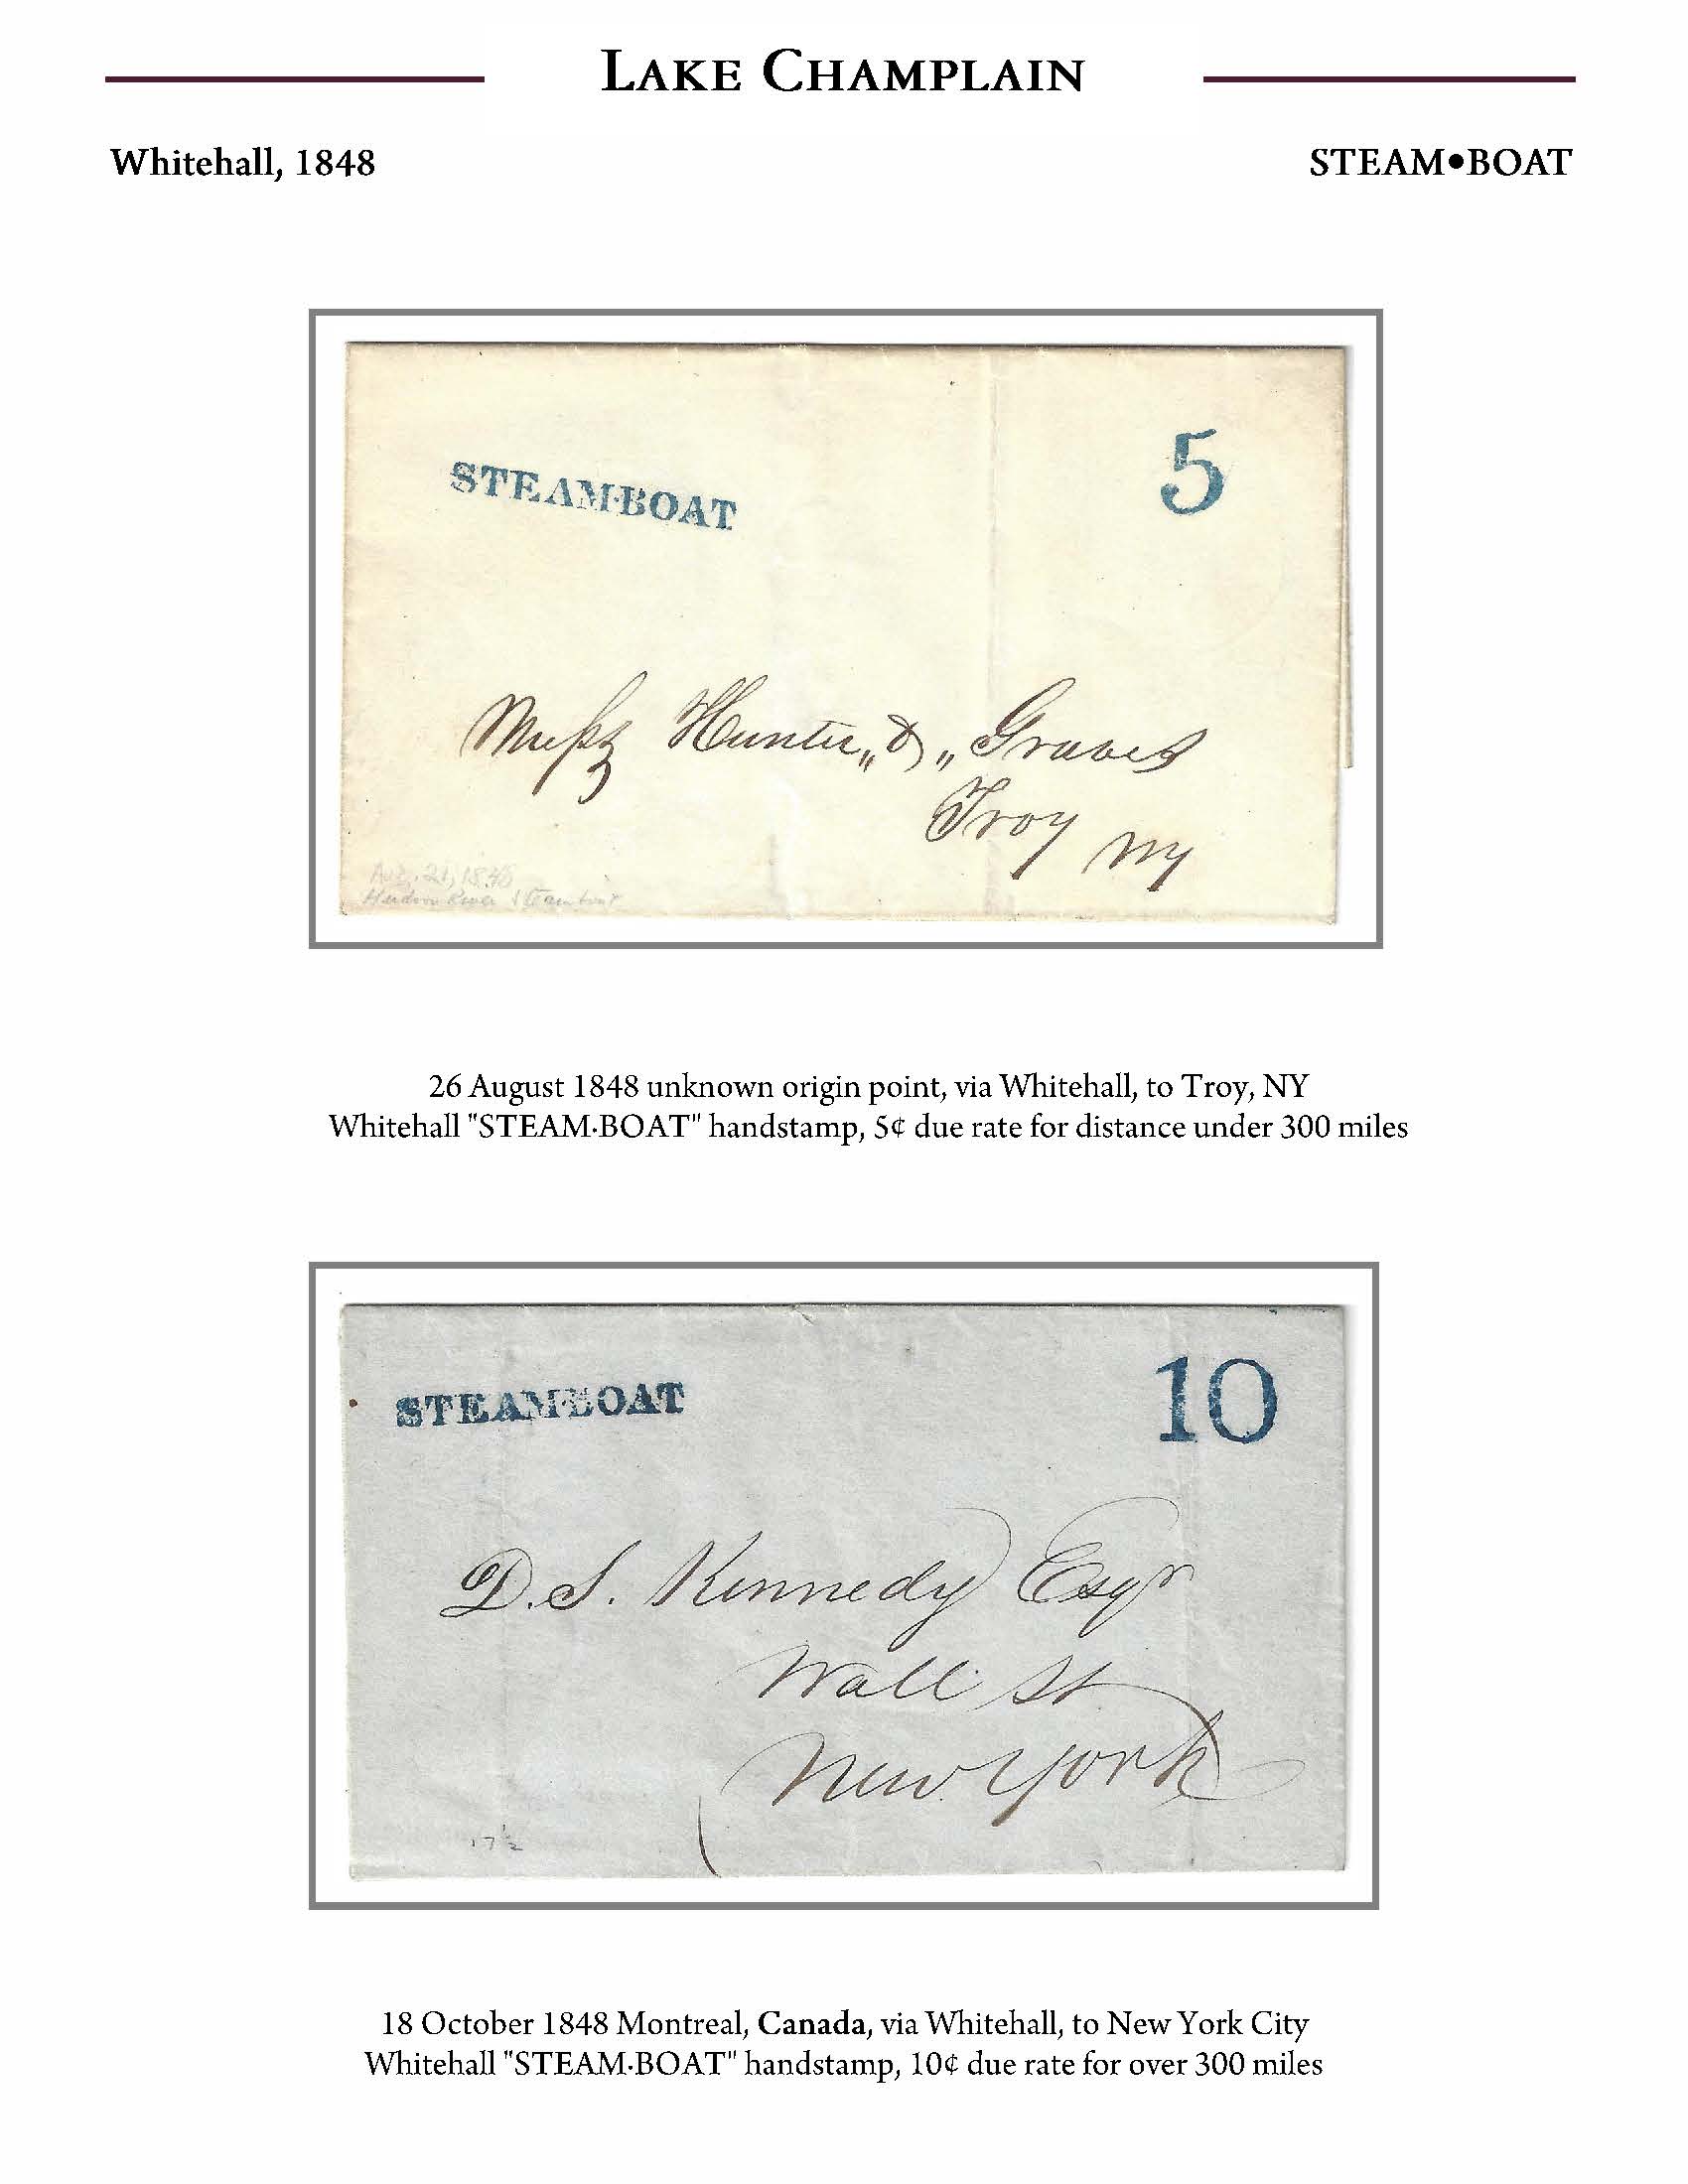 LAKE CHAMPLAIN
Whitehall, 1848
STEAM•BOAT
STEAM·BOAT
5
Messrs Hunter „&„ Graves
Troy
NY
Hudson River Steamboat
26 August 1848 unknown origin point, via Whitehall, to Troy, NY
Whitehall "STEAM·BOAT" handstamp, 5¢ due rate for distance under 300 miles
STEAM·BOAT
10
D. S. Kennedy Esqr
Wall St
New York
17½
18 October 1848 Montreal, Canada, via Whitehall, to New York City
Whitehall "STEAM·BOAT" handstamp, 10¢ due rate for over 300 miles